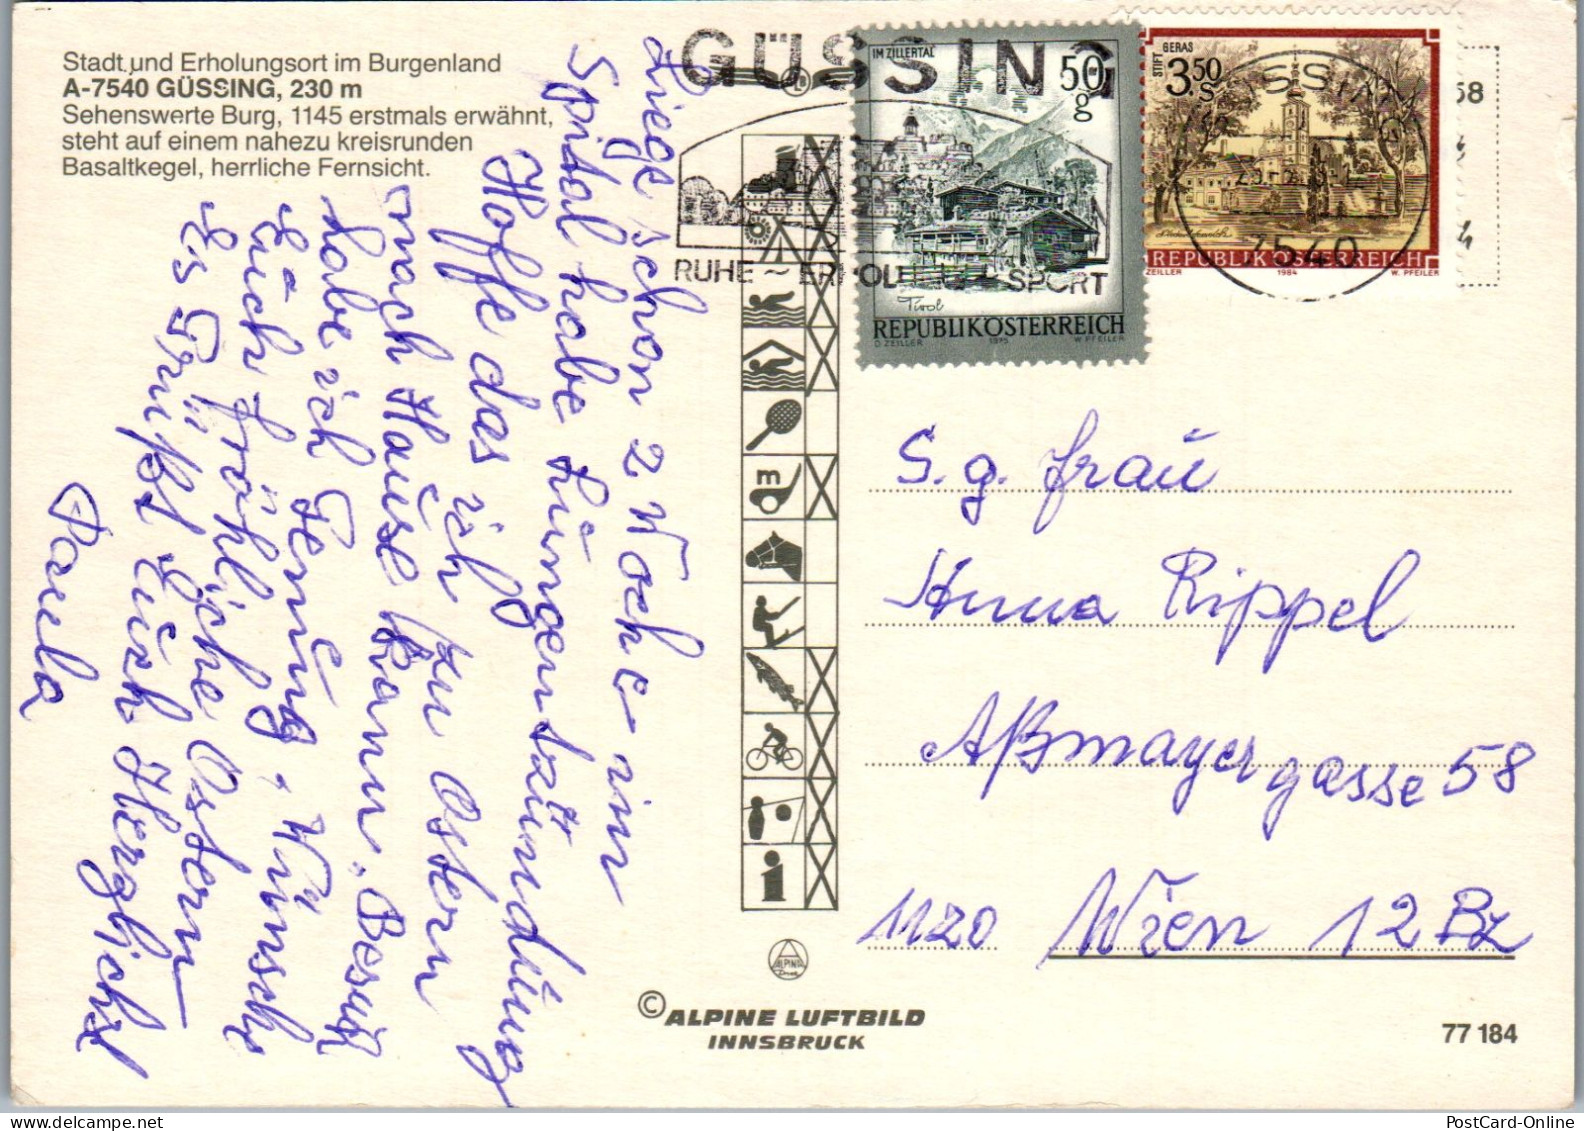 Stadt und Erholungsort im Burgenland
A-7540 GÜSSING, 230 m
Sehenswerte Burg, 1145 erstmals erwähnt,
steht auf einem nahezu kreisrunden
Basaltkegel, herrliche Fernsicht.
GÜSSING
RUHE ~ ERHOLUNG SPORT
IM ZILLERTAL
50 g
Tirol
REPUBLIK ÖSTERREICH
O. ZEILLER 1975 W. PFEILER
STIFT GERAS
3.50 S
Niederösterreich
REPUBLIK ÖSTERREICH
ZEILLER 1984 W. PFEILER
7540
58
Liege schon 2 Woche im
Spital habe Lungentzündung
Hoffe das ich zu Ostern
nach Hause kann. Besuch
habe ich Genug. Wünsche
Euch fröhliche Ostern
Es Grüßt Euch Herzlichst
Paula
m
i
S. g. Frau
Anna Rippel
Aßmayergasse 58
1120 Wien 12 Bz
ALPINA
© ALPINE LUFTBILD
INNSBRUCK
77 184
PostCard-Online.com